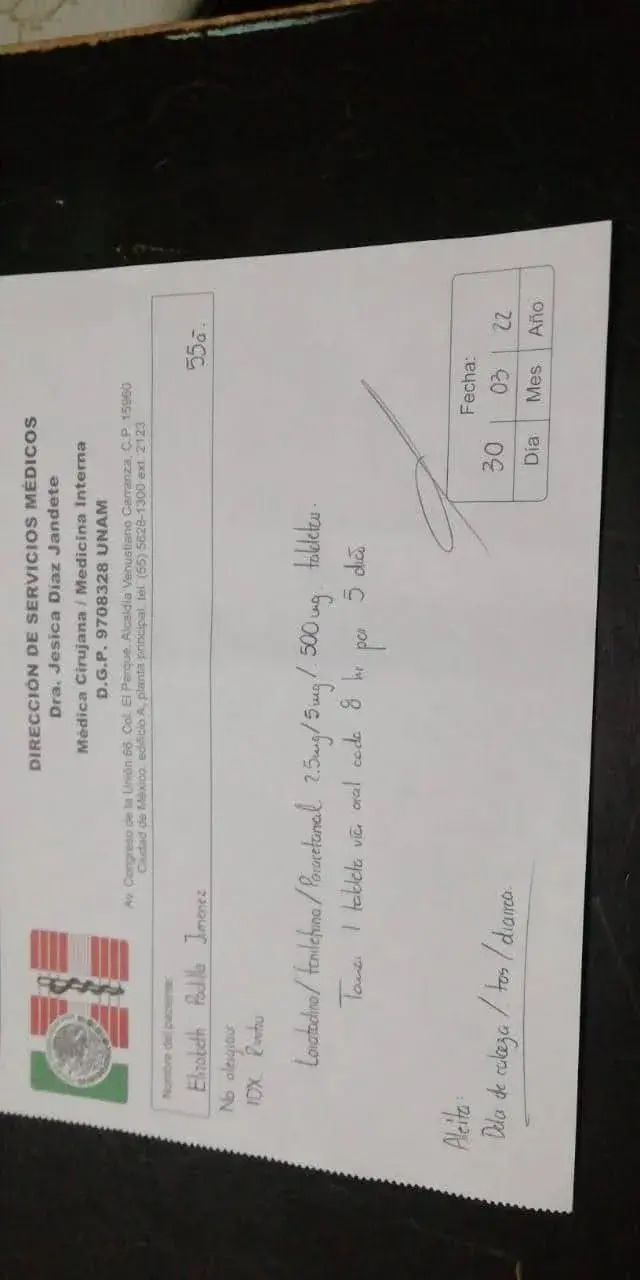 DIRECCIÓN DE SERVICIOS MÉDICOS
Dra. Jesica Díaz Jandete
Médica Cirujana / Medicina Interna
D.G.P. 9708328 UNAM
Av. Congreso de la Unión 66, Col. El Parque, Alcaldía Venustiano Carranza, C.P. 15960
Ciudad de México, edificio A, planta principal, tel. (55) 5628-1300 ext. 2123
Nombre del paciente:
Elizabeth Padilla Jimenez 55a.
No alergicos
IDX Rinitis
Loratadina/fenilefrina/Paracetamol 2.5mg/5mg/500mg. tabletas.
Tomar 1 tableta vía oral cada 8 hr por 5 días
Alerta:
Dolor de cabeza / tos / diarrea.
Fecha:
30 | 03 | 22
Día Mes Año